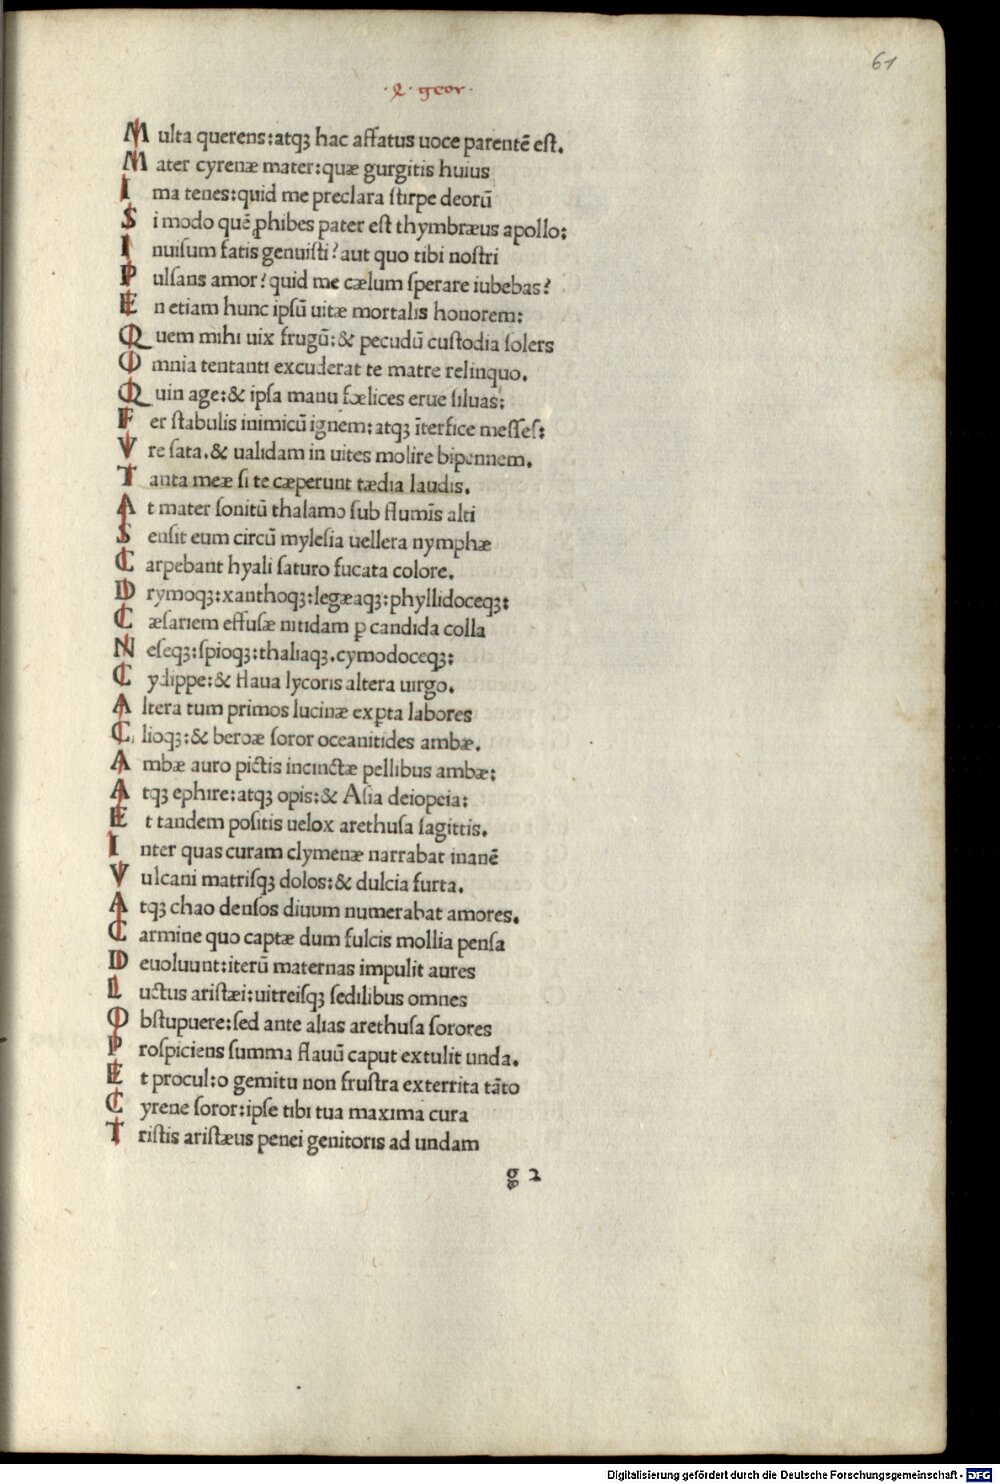 61
·L· geor·
M ulta querens:atqꝫ hac affatus uoce parentē eſt.
M ater cyrenæ mater:quæ gurgitis huius
I ma tenes:quid me preclara ſtirpe deorū
S i modo quē ꝓhibes pater eſt thymbræus apollo:
I nuiſum fatis genuiſti? aut quo tibi noſtri
P ulſans amor? quid me cælum ſperare iubebas?
E n etiam hunc ipſū uitæ mortalis honorem:
Q uem mihi uix frugū:& pecudū cuſtodia ſolers
O mnia tentanti excuderat te matre relinquo.
Q uin age:& ipſa manu fœlices erue ſiluas:
F er ſtabulis inimicū ignem:atqꝫ īterfice meſſeſ:
V re ſata.& ualidam in uites molire bipennem.
T anta meæ ſi te cæperunt tædia laudis.
A t mater ſonitū thalamo ſub flumīs alti
S enſit eum circū myleſia uellera nymphæ
C arpebant hyali ſaturo fucata colore.
D rymoqꝫ:xanthoqꝫ:legæaqꝫ:phyllidoceqꝫ:
C æſariem effuſæ nitidam ꝑ candida colla
N eſeqꝫ:ſpioqꝫ:thaliaqꝫ.cymodoceqꝫ:
C ydippe:& flaua lycoris altera uirgo.
A ltera tum primos lucinæ exꝑta labores
C lioqꝫ:& beroæ ſoror oceanitides ambæ.
A mbæ auro pictis incinctæ pellibus ambæ:
A tqꝫ ephire:atqꝫ opis:& Aſia deiopeia:
E t tandem poſitis uelox arethuſa ſagittis.
I nter quas curam clymenæ narrabat inanē
V ulcani matriſqꝫ dolos:& dulcia furta.
A tqꝫ chao denſos diuum numerabat amores.
C armine quo captæ dum fulcis mollia penſa
D euoluunt:iterū maternas impulit aures
L uctus ariſtæi:uitreiſqꝫ ſedilibus omnes
O bſtupuere:ſed ante alias arethuſa ſorores
P roſpiciens ſumma flauū caput extulit unda.
E t procul:o gemitu non fruſtra exterrita tāto
C yrene ſoror:ipſe tibi tua maxima cura
T riſtis ariſtæus penei genitoris ad undam
g 2
Digitalisierung gefördert durch die Deutsche Forschungsgemeinschaft - DFG